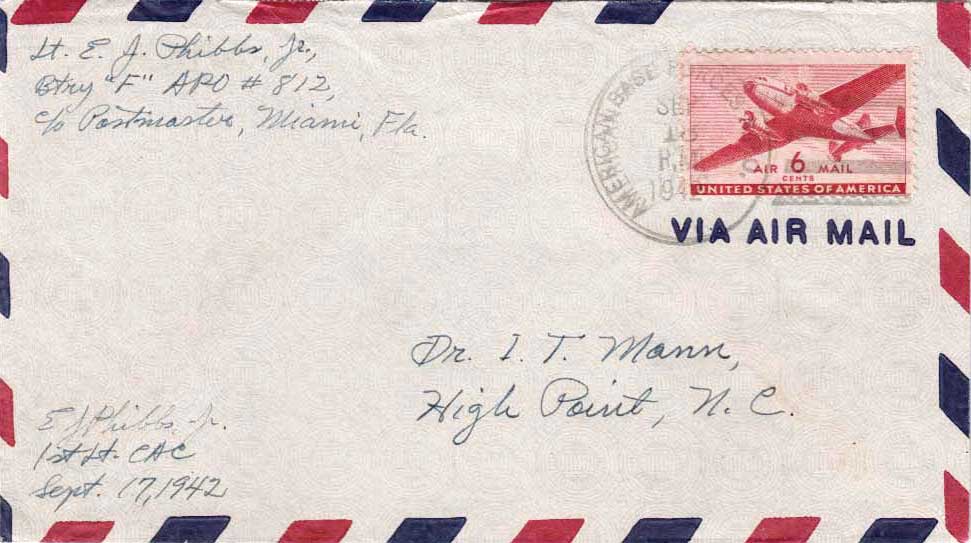 Lt. E. J. Phibbs, Jr.,
Btry "F" APO # 812,
c/o Postmaster, Miami, Fla.
AMERICAN BASE FORCES
SEP
1942
AIR 6 MAIL
CENTS
UNITED STATES OF AMERICA
VIA AIR MAIL
Dr. I. T. Mann,
High Point, N. C.
E J Phibbs Jr.
1st Lt. CAC
Sept. 17, 1942